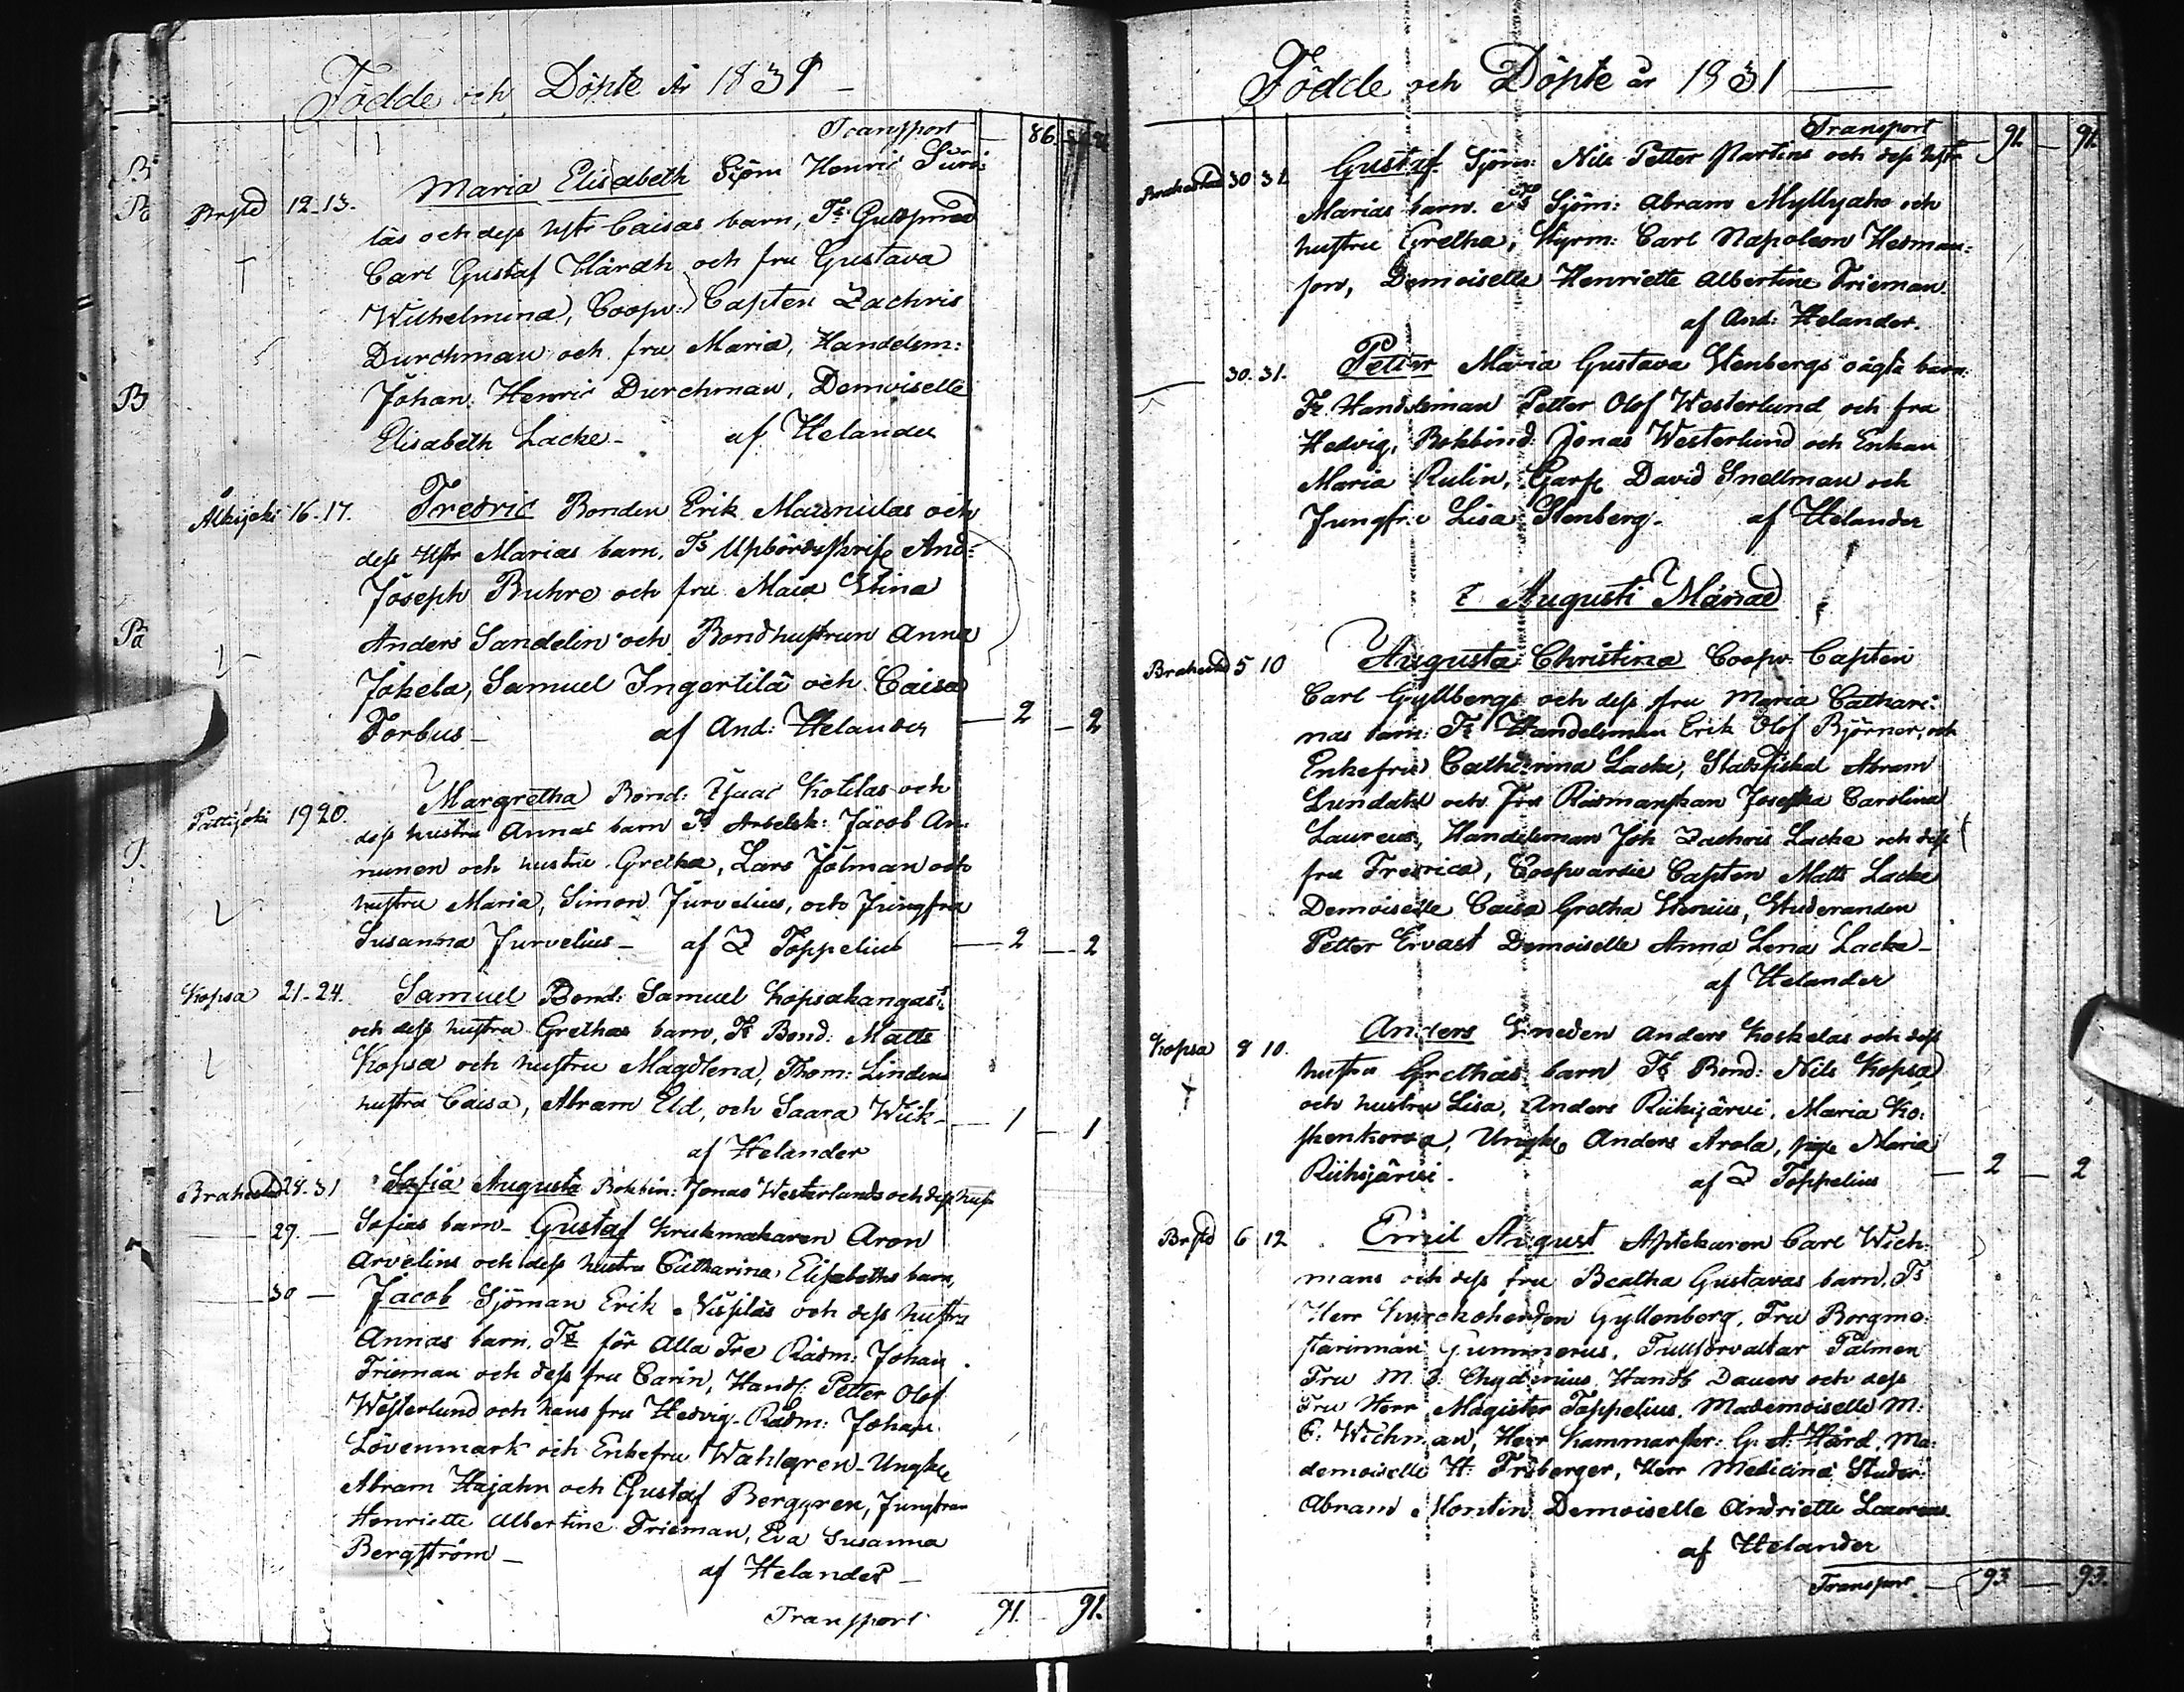 Födde och Döpte År 1831
Transport 86
Brstd 12-13. Maria Elisabeth Sjöm Henric
läs och dess hstr Caisas barn, Ts
Carl Gustaf Hårdh och fru Gustava
Wilhelmina, Coopv: Capten Zachris
Durchman och fru Maria, Handelsm:
Johan Henric Durchman, Demoiselle
Elisabeth Lacke - af Helander
Alkijoki 16-17. Fredric Bonden Erik och
dess Hstr Marias barn, Ts Upbördsskrifv And:
Joseph Buhre och fru Maria Stina
Anders Sandelin och Bondhustrun Anna
Jokela, Samuel Ingertilä och Caisa
Forbus - af And: Helander 2 2
Pattijoki 19 20. Margretha Bond: Isaac Kotilas och
dess hustru Annas barn Ts Jacob An-
nunen och hustru Gretha, Lars Jolman och
hustru Maria, Simon Jurvelius, och Jungfru
Susanna Jurvelius - af Z Toppelius 2 2
Kopsa 21-24. Samuel Bond: Samuel Kopsakangas
och dess hustru Grethas barn, Ts Bond: Matts
Kopsa och hustru Magdlena, Thom: Lindens
hustru Caisa, Abram Eld, och Saara Wiik - 1 1
af Helander
Brahestad 28. 31 Sofia Augusta Bokbin: Jonas Westerlunds och dess hust
29. Sofias barn - Gustaf Krukmakaren Aron
Arvelius och dess hustru Catharina Elisabeths barn,
30 Jacob Sjöman Erik och dess hustru
Annas barn. Ts för Alla Tre Rådm: Johan
Frieman och dess fru Carin, Handl: Petter Olof
Westerlund och hans fru Hedvig - Rådm: Johan
Lövenmark och Enkefru Wahlgren - Ungkl
Abram Hajahn och Gustaf Berggren, Jungfrun
Henriette Albertine Frieman, Eva Susanna
Bergström - af Helander -
Transport 91. 91.
Födde och Döpte år 1831
Transport 91. 91.
Brahestad 30 31. Gustaf Sjöm: Nils Petter Martins och dess hstr
Marias barn. Ts Sjöm: Abram Myllyaho och
hustru Gretha, Styrm: Carl Napoleon Hedman-
son, Demoiselle Henriette Albertine Frieman.
af And: Helander.
30. 31. Petter Maria Gustava Stenbergs oägta barn:
Ts Handelsman Petter Olof Westerlund och fru
Hedvig, Bokbind: Jonas Westerlund och Enkan
Maria Rulin, Garf David Snellman och
Jungfru Lisa Stenberg. af Helander
Augusti Månad
Brahestad 5 10 Augusta Christina Coopv: Capten
Carl Gyllbergs och dess fru Maria Cathari-
nas barn: Ts Handelsman Erik Olof Björner, och
Enkefru Catharina Lacke, Stadsfiskal Abram
Lundahl och Fru Rådmanskan Josepha Carolina
Laureus, Handelsman Joh Zachris Lacke och dess
fru Fredrica, Coopvardie Capten Matts Lacke
Demoiselle Caisa Gretha Stenius, Studeranden
Petter Ervast Demoiselle Anna Lena Lacke -
af Helander
Kopsa 8 10. Anders Smeden Anders Koskelas och dess
hustru Grethas barn Ts Bond: Nils Kopsa
och hustru Lisa, Anders Riihijärvi, Maria Ko-
skenkorva, Ungkl Anders Arola, pige Maria
Riihijärvi. af Z Toppelius 2 2
Brstd 6 12 Emil August Aptekaren Carl Wich-
mans och dess fru Beatha Gustavas barn. Ts
Herr Kyrckoherden Gyllenberg, Fru Borgmä-
starinnan Gummerus, Tullförvaltar Palmen
Fru M. Chydenius Handl Dauers och dess
Fru Herr Magister Toppelius, Mademoiselle M:
C: Wichman, Herr Kammarskr: G. A. Hård, Ma-
demoiselle H: Friberger, Herr Medicine Studer:
Abram Montin Demoiselle Andriette Laureus.
af Helander
Transport 93 93.